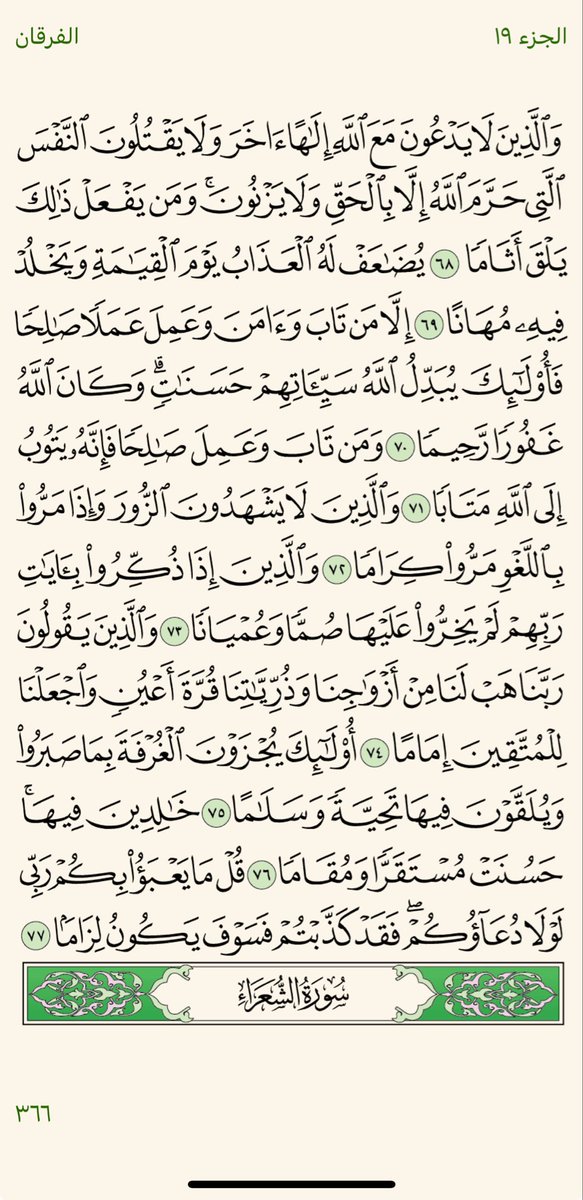 الجزء ١٩
الفرقان
وَٱلَّذِينَ لَا يَدْعُونَ مَعَ ٱللَّهِ إِلَٰهًا ءَاخَرَ وَلَا يَقْتُلُونَ ٱلنَّفْسَ
ٱلَّتِي حَرَّمَ ٱللَّهُ إِلَّا بِٱلْحَقِّ وَلَا يَزْنُونَۚ وَمَن يَفْعَلْ ذَٰلِكَ
يَلْقَ أَثَامًا ٦٨ يُضَٰعَفْ لَهُ ٱلْعَذَابُ يَوْمَ ٱلْقِيَٰمَةِ وَيَخْلُدْ
فِيهِۦ مُهَانًا ٦٩ إِلَّا مَن تَابَ وَءَامَنَ وَعَمِلَ عَمَلًا صَٰلِحًا
فَأُو۟لَٰٓئِكَ يُبَدِّلُ ٱللَّهُ سَيِّـَٔاتِهِمْ حَسَنَٰتٍۗ وَكَانَ ٱللَّهُ
غَفُورًا رَّحِيمًا ٧٠ وَمَن تَابَ وَعَمِلَ صَٰلِحًا فَإِنَّهُۥ يَتُوبُ
إِلَى ٱللَّهِ مَتَابًا ٧١ وَٱلَّذِينَ لَا يَشْهَدُونَ ٱلزُّورَ وَإِذَا مَرُّوا۟
بِٱللَّغْوِ مَرُّوا۟ كِرَامًا ٧٢ وَٱلَّذِينَ إِذَا ذُكِّرُوا۟ بِـَٔايَٰتِ
رَبِّهِمْ لَمْ يَخِرُّوا۟ عَلَيْهَا صُمًّا وَعُمْيَانًا ٧٣ وَٱلَّذِينَ يَقُولُونَ
رَبَّنَا هَبْ لَنَا مِنْ أَزْوَٰجِنَا وَذُرِّيَّٰتِنَا قُرَّةَ أَعْيُنٍ وَٱجْعَلْنَا
لِلْمُتَّقِينَ إِمَامًا ٧٤ أُو۟لَٰٓئِكَ يُجْزَوْنَ ٱلْغُرْفَةَ بِمَا صَبَرُوا۟
وَيُلَقَّوْنَ فِيهَا تَحِيَّةً وَسَلَٰمًا ٧٥ خَٰلِدِينَ فِيهَاۚ
حَسُنَتْ مُسْتَقَرًّا وَمُقَامًا ٧٦ قُلْ مَا يَعْبَؤُا۟ بِكُمْ رَبِّي
لَوْلَا دُعَآؤُكُمْۖ فَقَدْ كَذَّبْتُمْ فَسَوْفَ يَكُونُ لِزَامًۢا ٧٧
سُورَةُ الشُّعَرَاءِ
٣٦٦